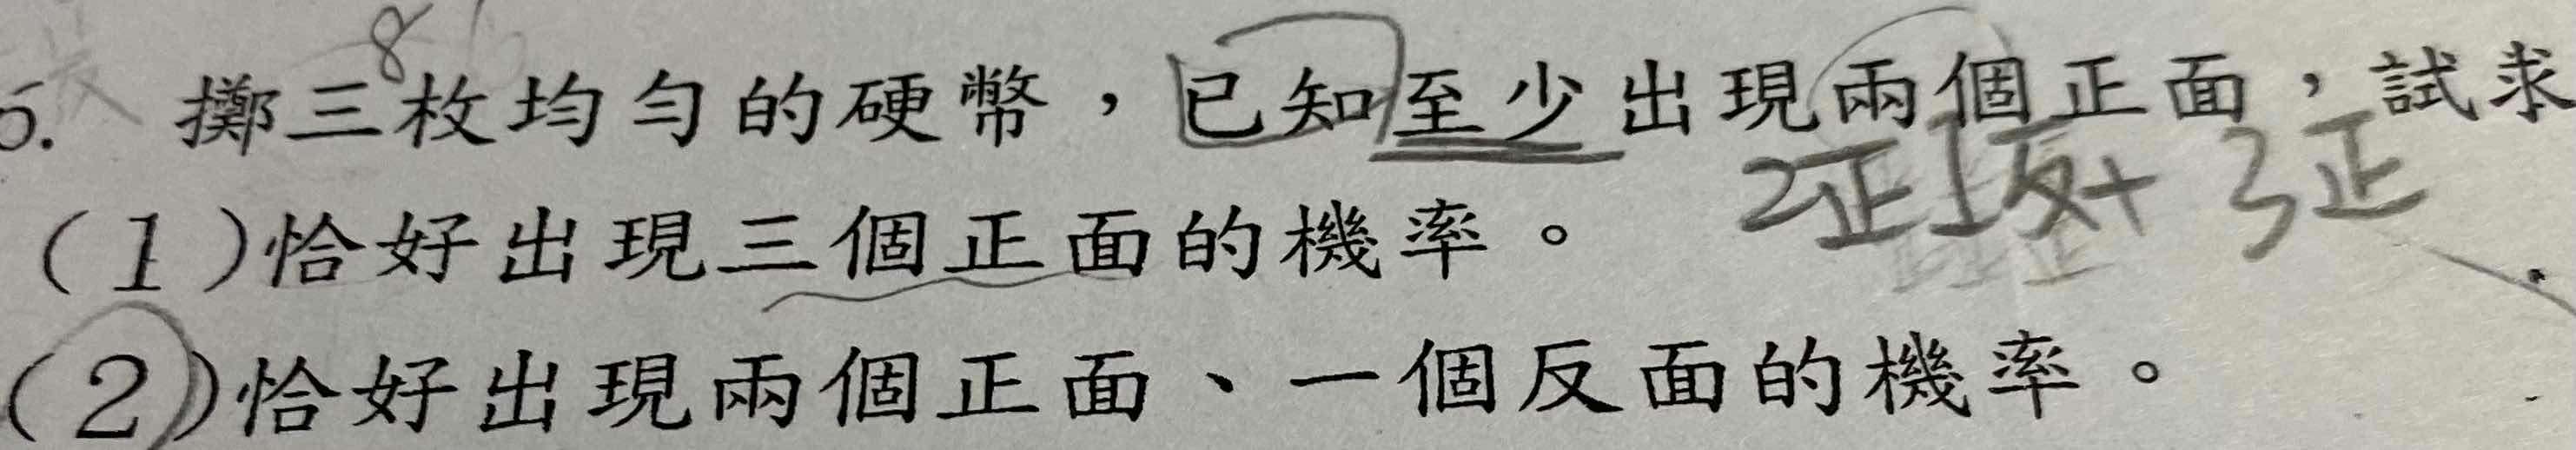 8
6. 擲三枚均勻的硬幣，已知至少出現兩個正面，試求
2正1反+3正
(1)恰好出現三個正面的機率。
(2)恰好出現兩個正面、一個反面的機率。